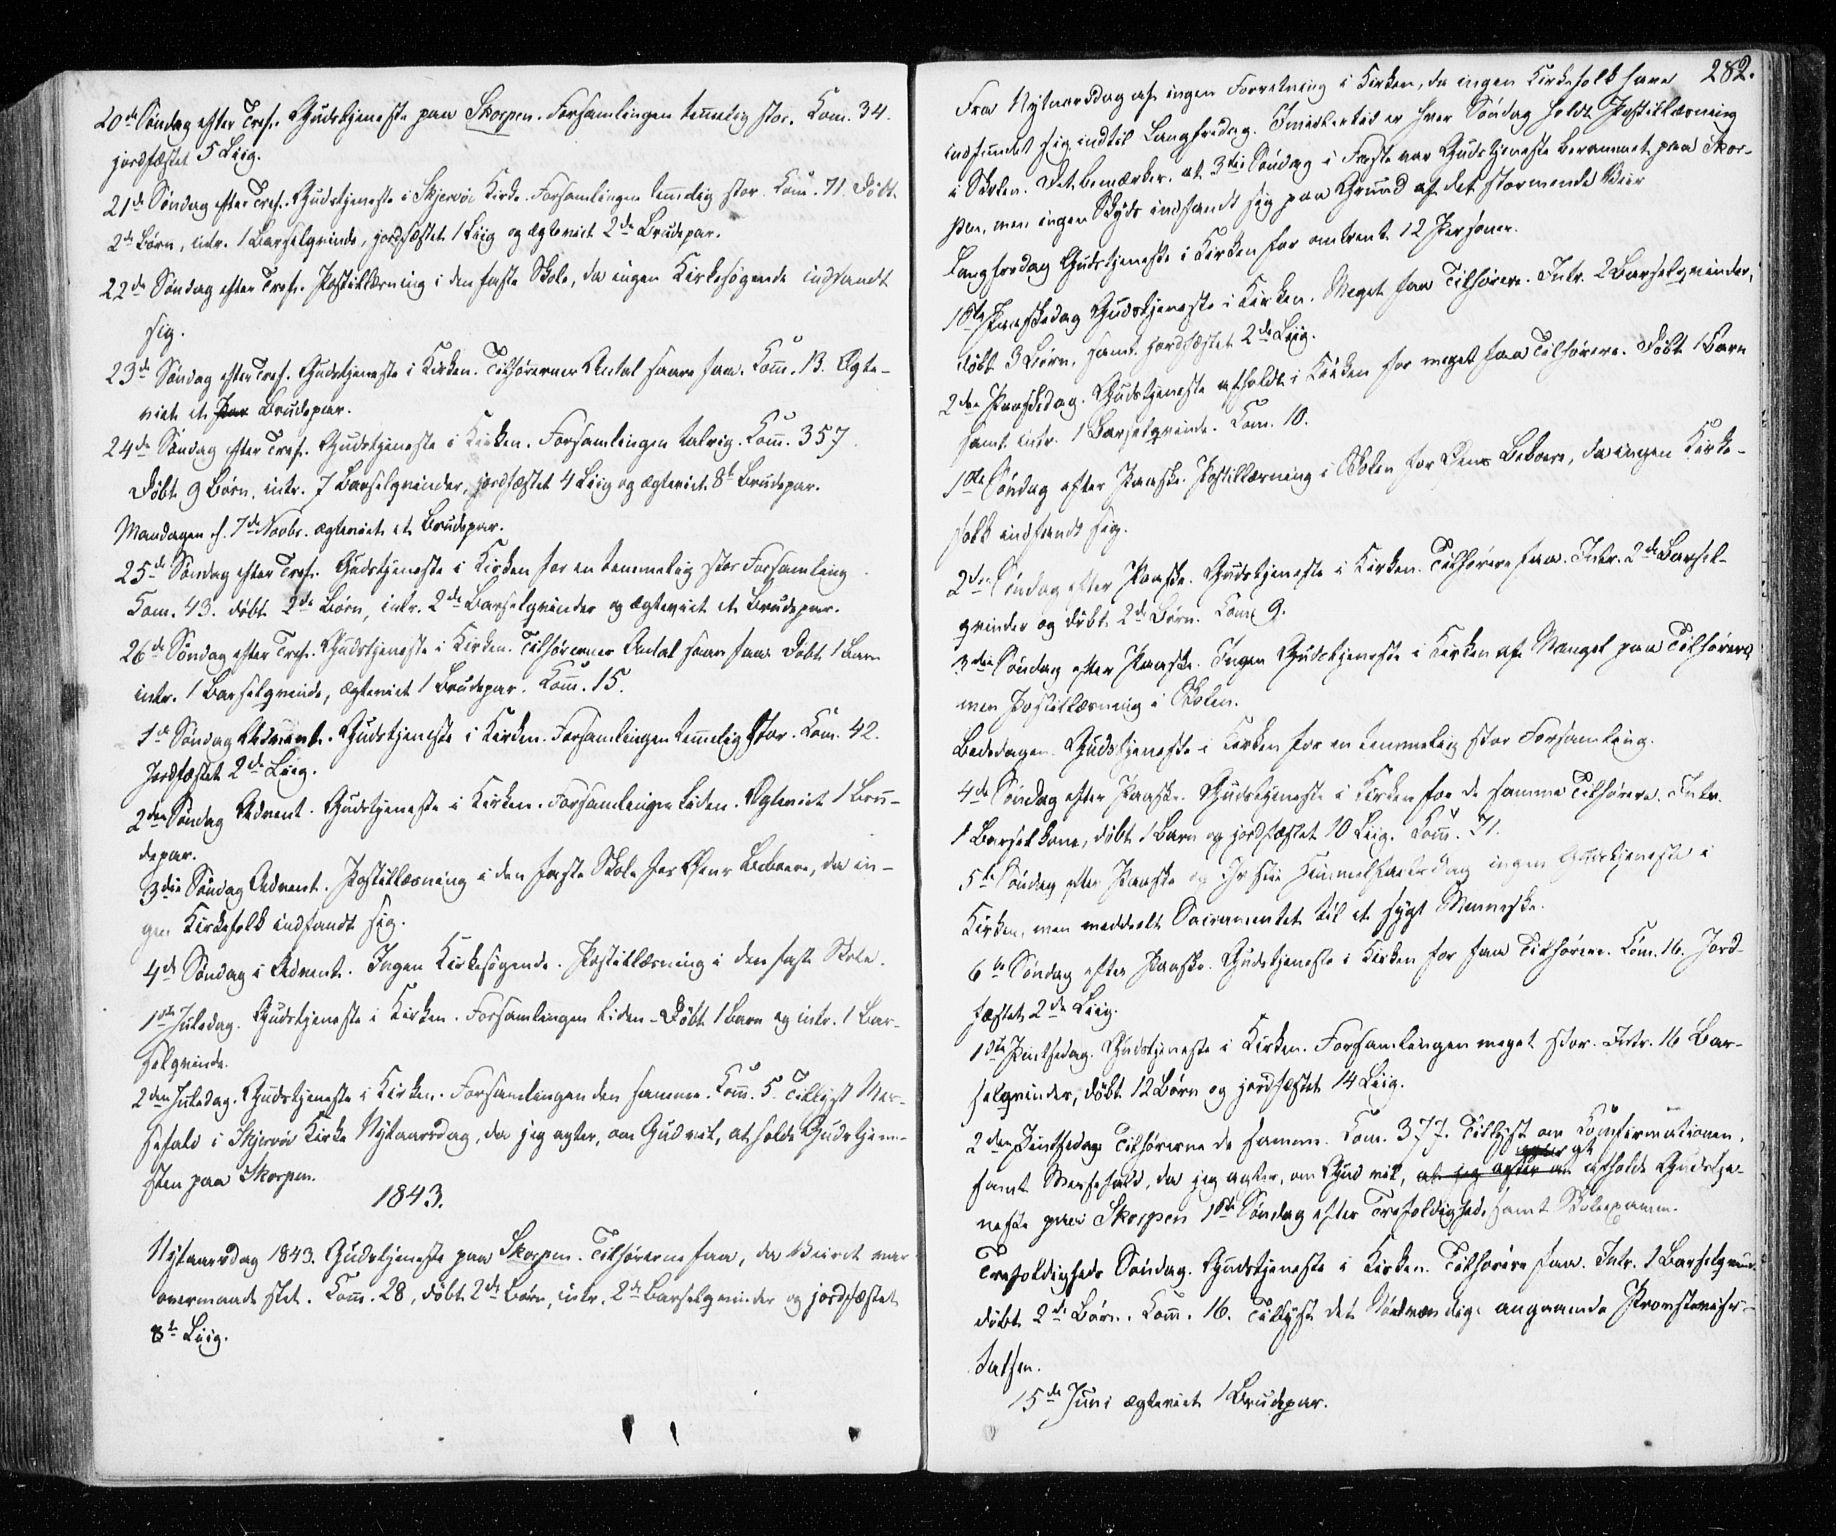 20de Søndag efter Tref. Gudstjeneste paa Skorpen. Forsamlingen temelig stor. Kom. 34.
jordfæstet 5 Liig.
21de Søndag efter Tref. Gudstjeneste i Skjervøi Kirke. Forsamlingen temelig stor. Kom. 71. Døbt
2de Børn, intr. 1 Barselqvinde, jordfæstet 1 Liig og ægteviet 2de Brudepar.
22de Søndag efter Tref. Postillæsning i den faste Skole, da ingen Kirkesøgende indfandt
sig.
23de Søndag efter Tref. Gudstjeneste i Kirken. Tilhørernes Antal saare faa. Kom. 13. Ægte-
viet et Par Brudepar.
24de Søndag efter Tref. Gudstjeneste i Kirken. Forsamlingen talrig. Kom. 357.
Døbt 9 Børn, intr. 7 Barselqvinder, jordfæstet 4 Liig og ægteviet 8te Brudepar.
Mandagen d. 7de Novbr. ægteviet et Brudepar.
25de Søndag efter Tref. Gudstjeneste i Kirken for en temmelig stor Forsamling.
Kom. 43. døbt 2de Børn, intr. 2de Barselqvinder og ægteviet et Brudepar.
26de Søndag efter Tref. Gudstjeneste i Kirken. Tilhørernes Antal saare faa. Døbt 1 Barn
intr. 1 Barselqvinde, ægteviet 1 Brudepar. Kom. 15.
1ste Søndag Advent. Gudstjeneste i Kirken. Forsamlingen temelig stor. Kom. 42.
Jordfæstet 2de Liig.
2den Søndag Advent. Gudstjeneste i Kirken. Forsamlingen liden. Ægteviet 1 Bru-
depar.
3die Søndag Advent. Postillæsning i den faste Skole for Øens Beboere, da in-
gen Kirkefolk indfandt sig.
4de Søndag i Advent. Ingen Kirkesøgende. Postillæsning i den faste Skole.
1ste Juledag. Gudstjeneste i Kirken. Forsamlingen liden. Døbt 1 Barn og intr. 1 Bar-
selqvinde.
2den Juledag. Gudstjeneste i Kirken. Forsamlingen den samme. Kom. 5. Tillyst Mes-
sefald i Skjervøi Kirke Nytaarsdag, da jeg agter, om Gud vil, at holde Gudstjene-
sten paa Skorpen.
1843.
Nytaarsdag 1843. Gudstjeneste paa Skorpen. Tilhørerne faa, da Veiret var
overmaade slet. Kom. 28, døbt 2de Børn, intr. 2de Barselqvinder og jordfæstet
8te Liig.
282.
Fra Nytaarsdag af ingen Forretning i Kirken, da ingen Kirkefolk have
indfundet sig indtil Langfredag. Imidlertid er hver Søndag holdt Postillæsning
i Skolen. Det bemærkes, at 3die Søndag i Faste var Gudstjeneste berammet paa Skor-
pen, men ingen Skyds indfandt sig paa Grund af det stormende Veir
Langfredag Gudstjeneste i Kirken for omtrent 12 Personer.
1ste Paaskedag Gudstjeneste i Kirken. Meget faa Tilhørere. Intr. 2 Barselqvinder,
døbt 3 Børn, samt jordfæstet 2de Liig.
2den Paaskedag. Gudstjeneste afholdt i Kirken for meget faa Tilhørere. Døbt 1 Barn
samt intr. 1 Barselqvinde. Kom. 10.
1ste Søndag efter Paaske. Postillæsning i Skolen for Øens Beboere, da ingen Kirke-
folk indfandt sig.
2den Søndag efter Paaske. Gudstjeneste i Kirken. Tilhørere faa. Intr. 2de Barsel-
qvinder og døbt 2de Børn. Kom. 9.
3die Søndag efter Paaske. Ingen Gudstjeneste i Kirken af Mangel paa Tilhørere,
men Postillæsning i Skolen.
Bededagen. Gudstjeneste i Kirken for en temmelig stor Forsamling.
4de Søndag efter Paaske. Gudstjeneste i Kirken for de samme Tilhørere. Intr.
1 Barselkone, døbt 1 Barn og jordfæstet 10 Liig. Kom. 71.
5te Søndag efter Paaske og Chr. Himmelfartsdag ingen Gudstjeneste i
Kirken, men meddeelt Sacramentet til et sygt Menneske.
6te Søndag efter Paaske. Gudstjeneste i Kirken for faa Tilhørere. Kom. 16. Jord-
fæstet 2de Liig.
1ste Pintsedag. Gudstjeneste i Kirken. Forsamlingen meget stor. Intr. 16 Bar-
selqvinder, døbt 12 Børn og jordfæstet 14 Liig.
2den Pintsedag Tilhørerne de samme. Kom. 377. Tillyst om Confirmationen,
samt Messefald, da jeg agter, om Gud vil, at jeg agter at afholde Gudstje-
neste paa Skorpen 1ste Søndag efter Trefoldighed, samt Skoleexamen.
Trefoldigheds Søndag. Gudstjeneste i Kirken. Tilhørere faa. Intr. 1 Barselqvinde
døbt 2de Børn. Kom. 16. Tillyst det Nødvendige angaaende Provstevisi-
tatsen.
15de Juni ægteviet 1 Brudepar.